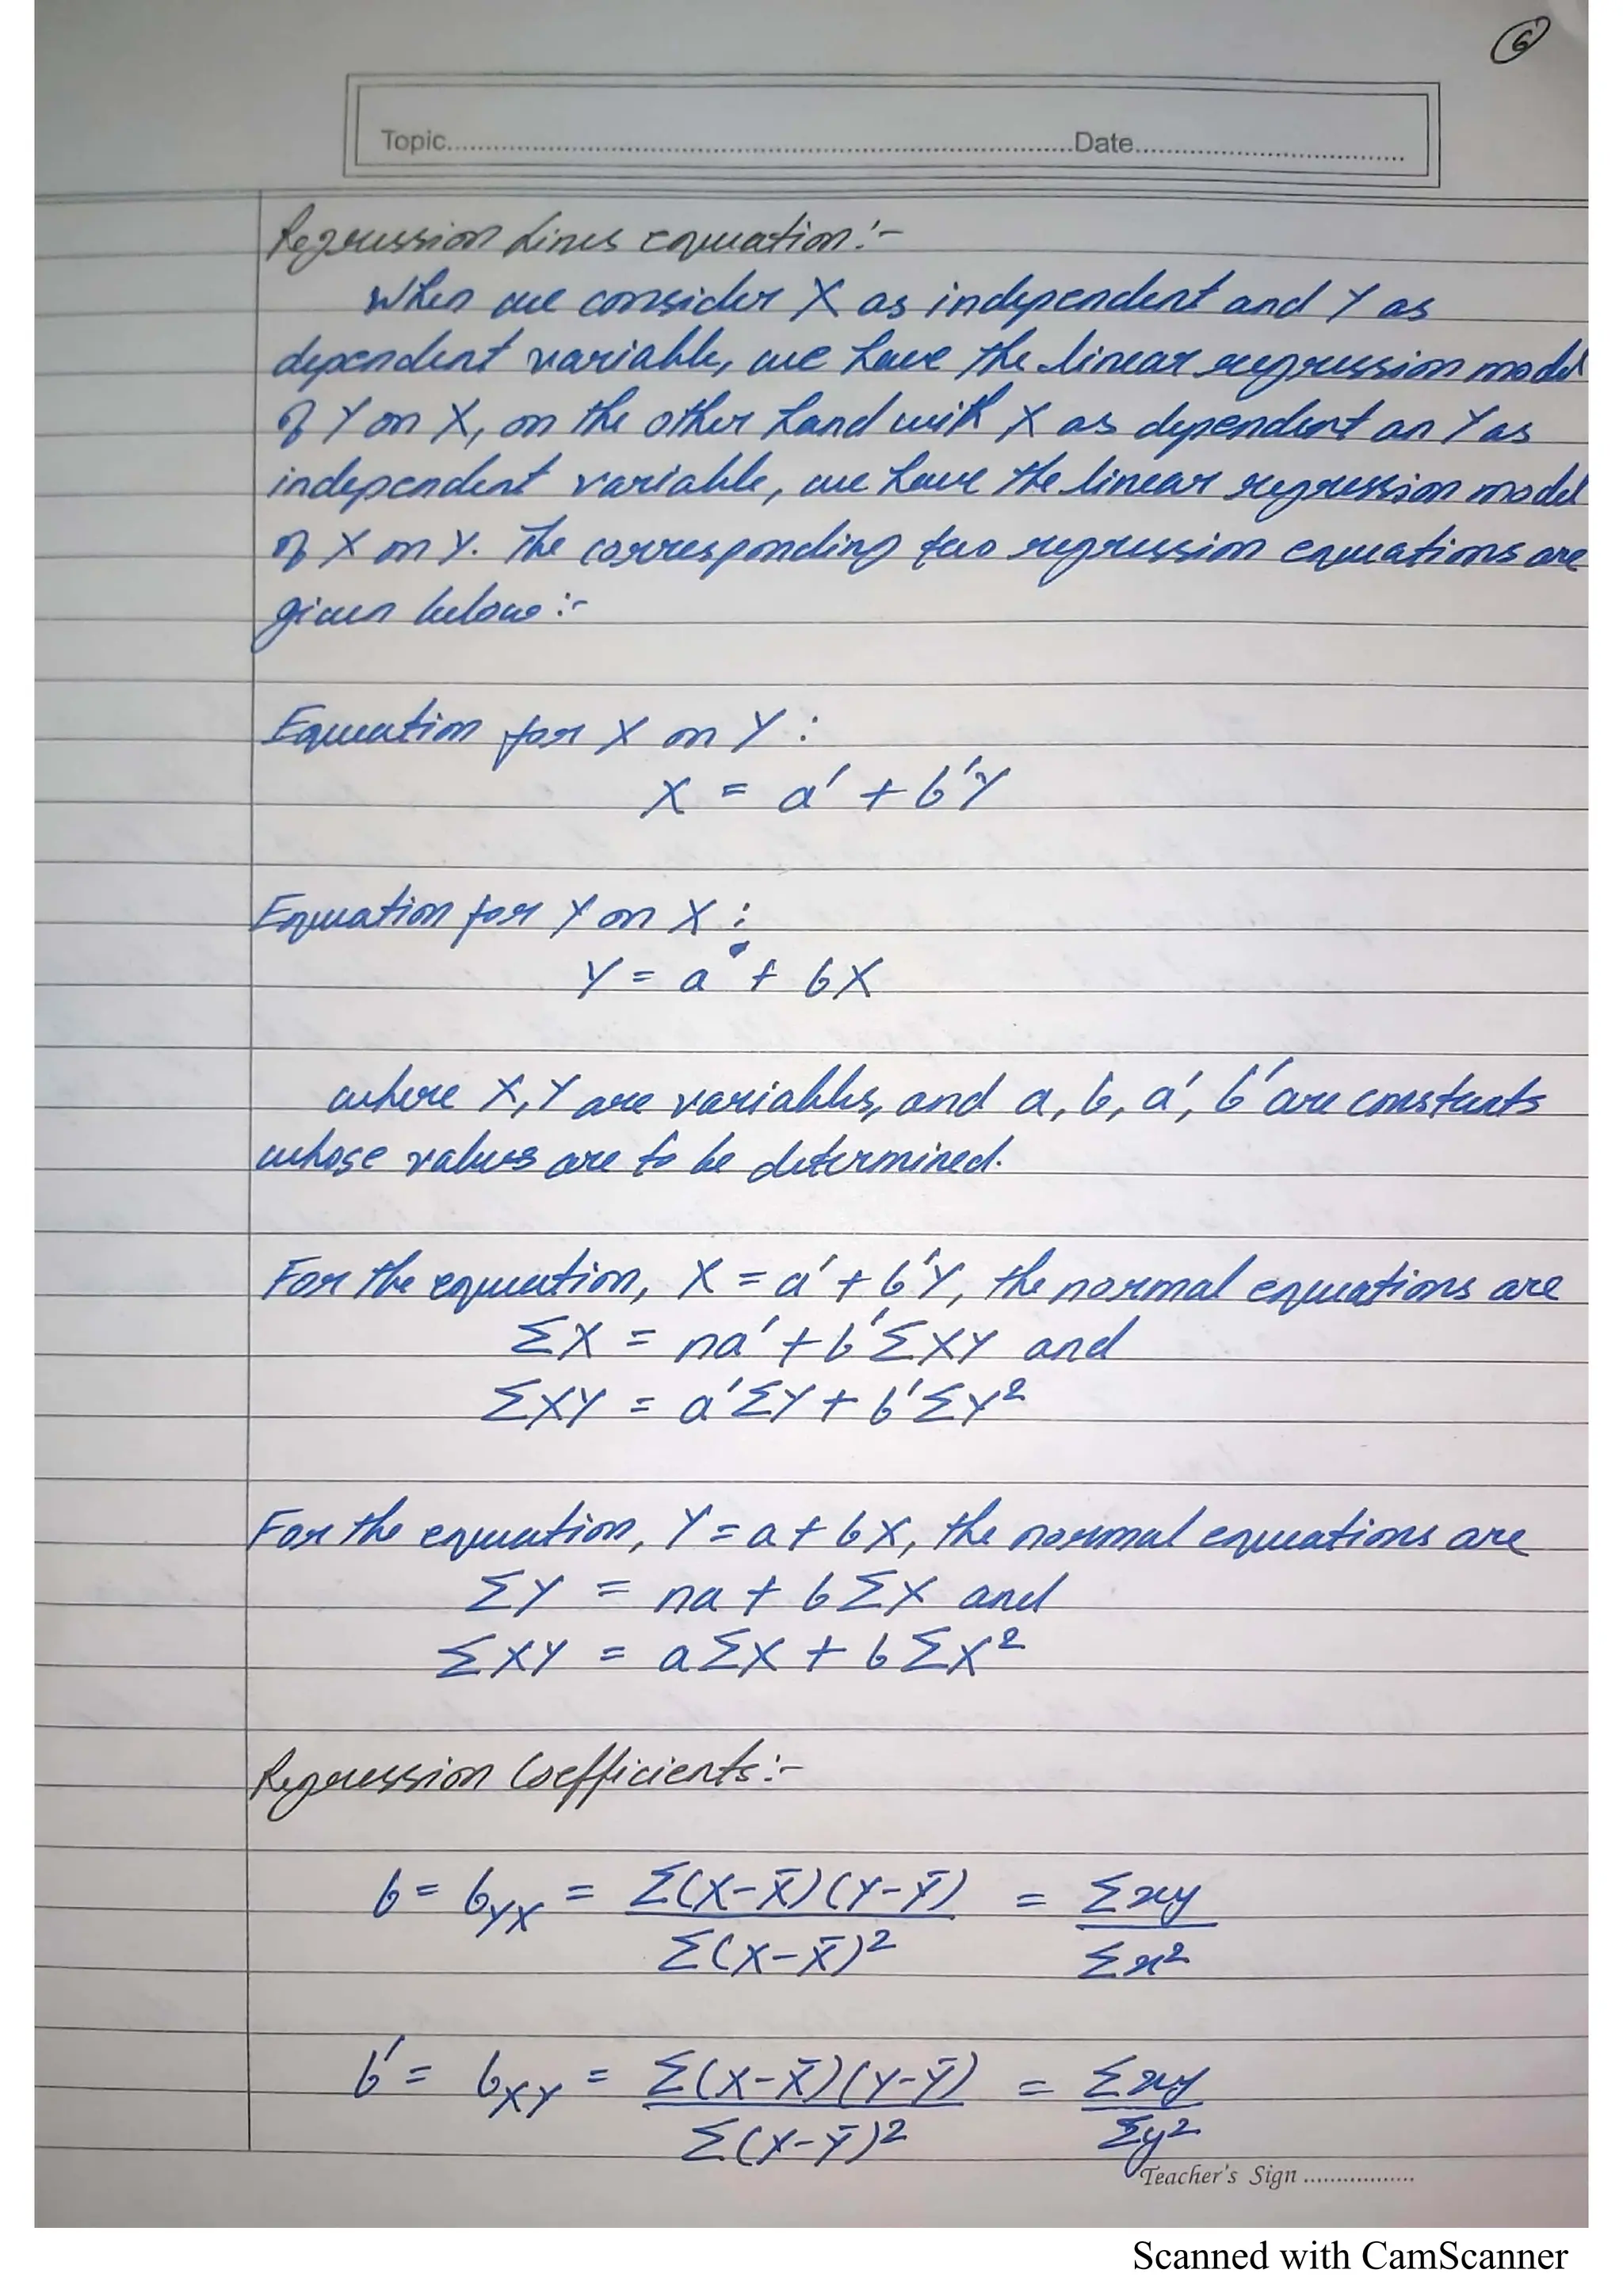 6
Topic..........Date..........
Regression Lines equation:-
When we consider X as independent and Y as
dependent variable, we have the linear regression model
of Y on X, on the other hand with X as dependent an Y as
independent variable, we have the linear regression model
of X on Y. The corresponding two regression equations are
given below:-
Equation for X on Y :
X = a' + b'Y
Equation for Y on X :
Y = a + bX
where X, Y are variables, and a, b, a', b' are constants
whose values are to be determined.
For the equation, X = a' + b'Y, the normal equations are
ΣX = na' + b'ΣXY and
ΣXY = a'ΣY + b'ΣY²
For the equation, Y = a + bX, the normal equations are
ΣY = na + bΣX and
ΣXY = aΣX + bΣX²
Regression Coefficients:-
b = b_YX = Σ(X-X̄)(Y-Ȳ) / Σ(X-X̄)² = Σxy / Σx²
b' = b_XY = Σ(X-X̄)(Y-Ȳ) / Σ(Y-Ȳ)² = Σxy / Σy²
Teacher's Sign ..........
Scanned with CamScanner